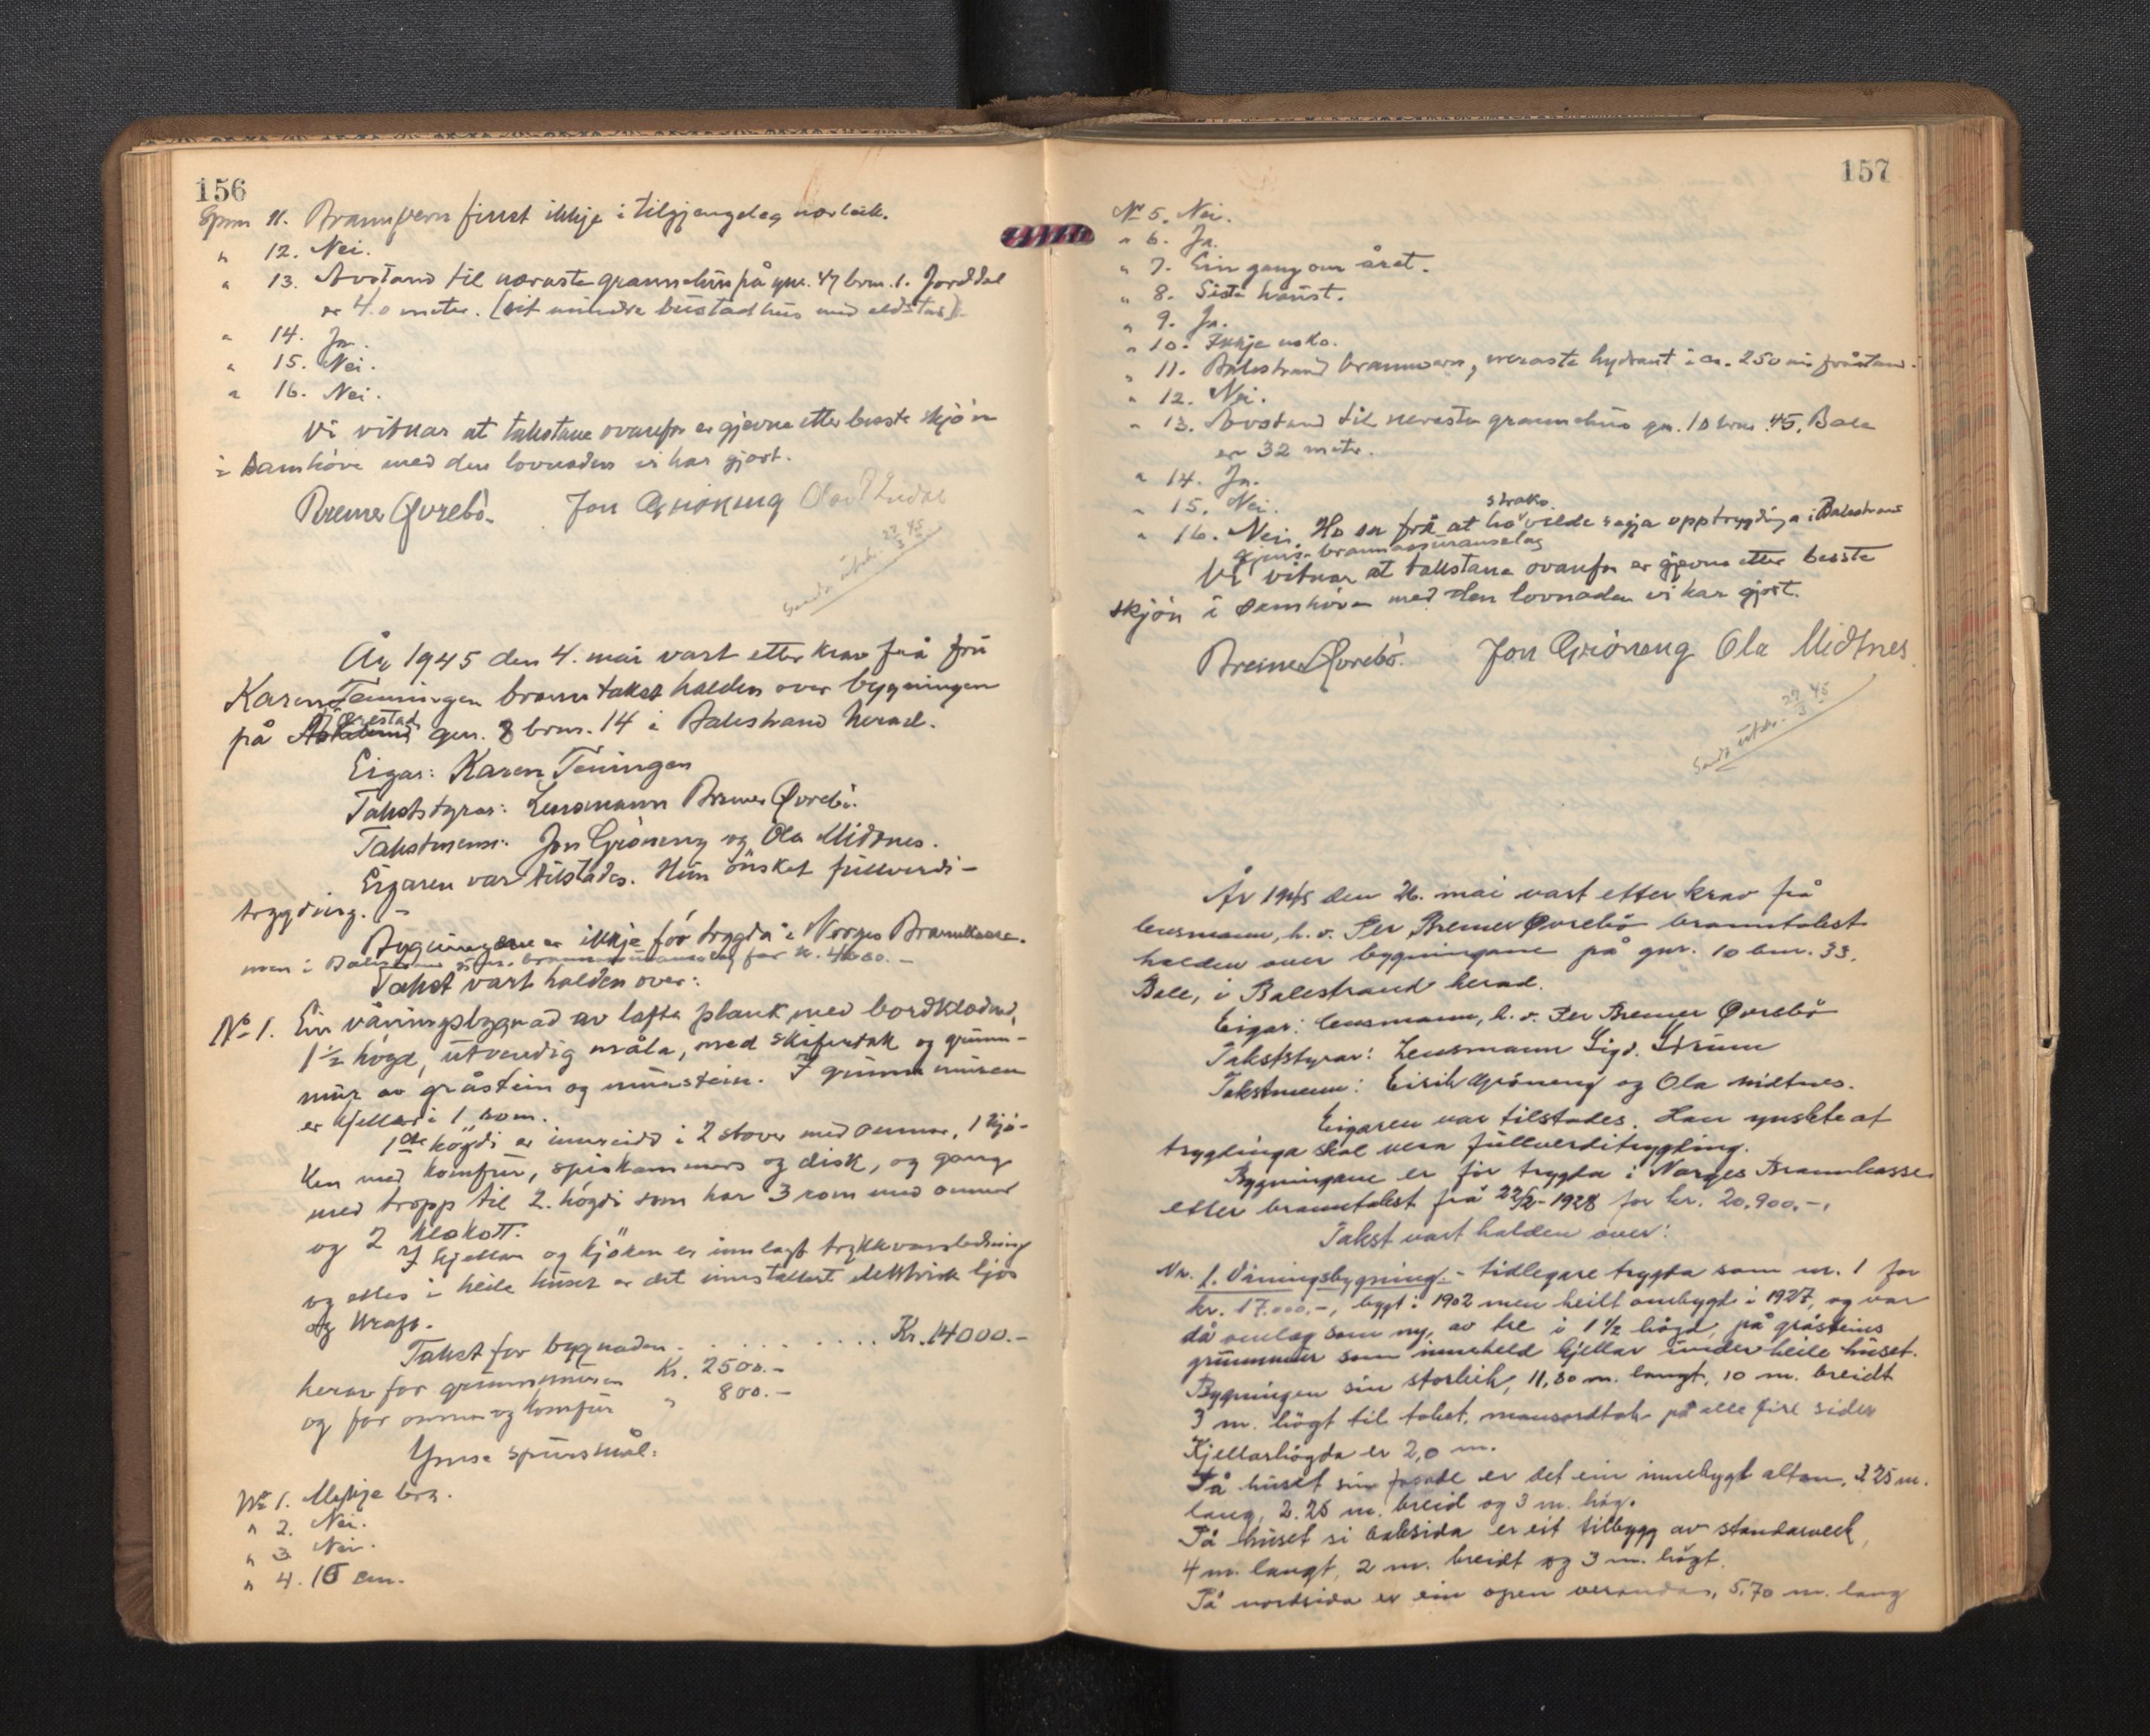 156
Spm 11. Brannvern finst ikkje i tilgjengeleg nærleik.
" 12. Nei.
" 13. Avstand til næraste grannehus på gnr. 47 brn. 1. Jorddal
er 4.0 meter. (eit mindre bustadhus med eldstad).
" 14. Ja.
" 15. Nei.
" 16. Nei.
Vi vitnar at takstane ovanfor er gjevne etter beste skjøn
i samhøve med den lovnaden vi har gjort.
Bremer Øvrebö. Jon Gröneng Olav
Sendt utskr. 22/3 45
År 1945 den 4. mai vart etter krav frå fru
Karen Teningen branntakst halden over bygningen
på gnr. 8 brn. 14 i Balestrand herad.
Eigar: Karen Teningen
Takststyrar: Lensmann Bremer Øvrebö.
Takstmenn: Jon Gröneng og Ola Midtnes.
Eigaren var tilstades. Hun önsket fullverdi-
trygding. -
Bygningane er ikkje för trygda i Norges Brannkasse.
men i Balestrand gjens. brannassuranselag for kr. 4000.-
Takst vart halden over:
No 1. Ein våningsbygnad av lafta plank med bordklædnad,
1 1/2 högd, utvendig måla, med skifertak og grunn-
mur av gråstein og murstein. I grunnmuren
er kjellar i 1 rom.
1ste högdi er innreidd i 2 stover med omnar, 1 kjö-
ken med komfur, spiskammers og disk, og gang
med tropp til 2. högdi som har 3 rom med omnar
og 2 kleskott.
I kjellar og kjöken er innlagt trykkvassledning
og elles i heile huset er det innstallert elektrisk ljos
og kraft.
Takst for bygnaden . . . . . . . . Kr. 14000.-
herav for grunnmuren Kr. 2500.-
og for omnar og komfur " 800.-
Ymse spursmål:
No 1. Mykje bra.
" 2. Nei.
" 3. Nei.
" 4. 15 cm.
157
No 5. Nei.
" 6. Ja.
" 7. Ein gang om året.
" 8. Siste haust.
" 9. Ja.
" 10. Ikkje noko.
" 11. Balestrand brannvern, næraste hydrant i ca. 250 m. fråstand.
" 12. Nei.
" 13. Avstand til næraste grannehus gn. 10 brn. 45, Bale
er 32 meter.
" 14. Ja.
" 15. Nei.
straks
" 16. Nei. Ho sa frå at ho vilde segja opp trygdinga i Balestrand
gjens. brannassuranselag
Vi vitnar at takstane ovanfor er gjevne etter beste
skjön i samhöve med den lovnaden vi har gjort.
Bremer Øvrebö. Jon Gröneng Ola Midtnes
Sendt utskr. 22/3 45
År 1945 den 26. mai vart etter krav frå
lensmann, h. v. Per Bremer Øvrebö branntakst
halden over bygningane på gnr. 10 bnr. 33,
Bale, i Balestrand herad.
Eigar: lensmann, h. v. Per Bremer Øvrebö
Takststyrar: Lensmann Sigd.
Takstmenn: Eirik Gröneng og Ola Midtnes.
Eigaren var tilstades. Han ynskte at
trygdinga skal vera fullverditrygding.
Bygningane er för trygda i Norges Brannkasse
etter branntakst frå 22/2-1928 for kr. 20.900.-.
Takst vart halden over:
Nr. 1. Våningsbygning. - tidlegare trygda som nr. 1 for
kr. 17.000.-, bygt i 1902 men heilt ombygt i 1927, og var
då omlag som ny, av tre i 1 1/2 högd, på gråsteins
grunnmur som inneheld kjellar under heile huset.
Bygningen sin storleik, 11,80 m. langt, 10 m. breidt
3 m. högt til taket, mansardtak på alle fire sider
Kjellarhögda er 2,0 m.
På huset sin fasade er det ein innebygt altan, 3.25 m.
lang, 2.25 m. breid og 3 m. hög.
På huset si bakside er eit tilbygg av standarverk,
4 m. langt, 2 m. breidt og 3 m. högt.
På nordsida er ein open veranda, 5,70 m. lang